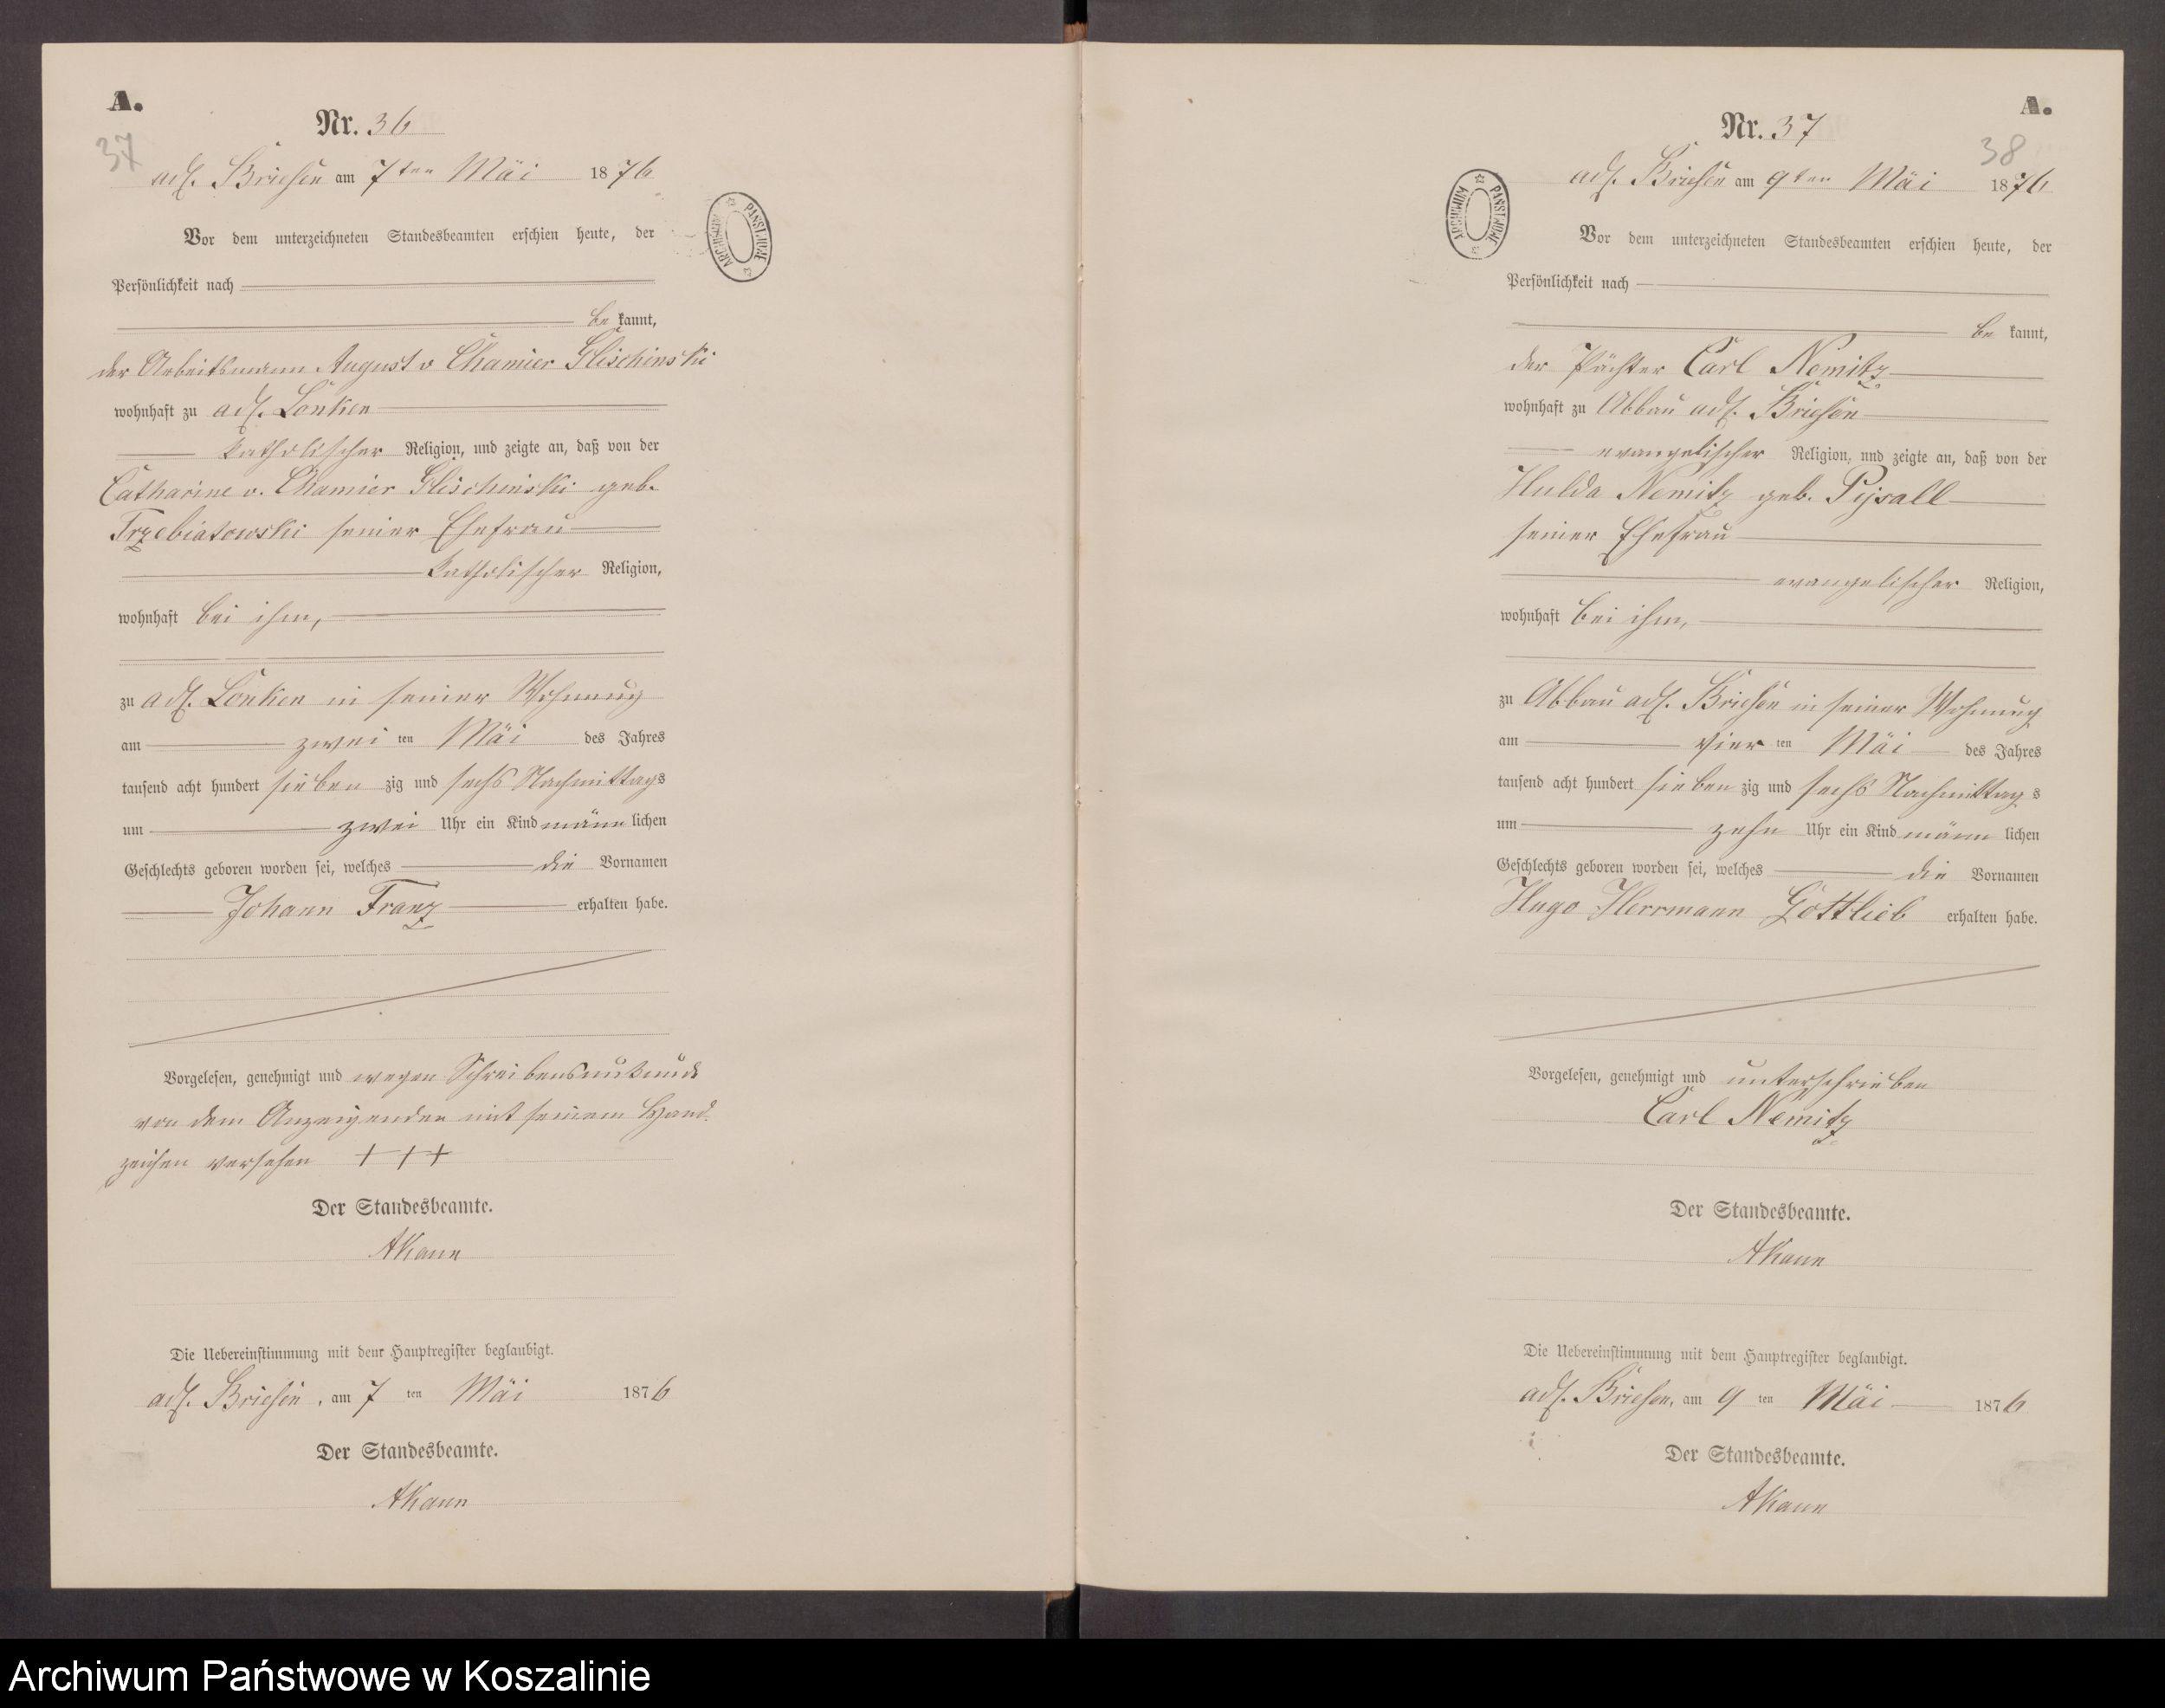 A.
Nr. 36
37
adl. Briesen am 7ten Mai 1876
Vor dem unterzeichneten Standesbeamten erschien heute, der
Persönlichkeit nach
bekannt,
der Arbeitsmann August v Chamier Glischinski
wohnhaft zu adl. Lonken
katholischer Religion, und zeigte an, daß von der
Catharine v. Chamier Glischinski geb.
Trzebiatowski seiner Ehefrau
katholischer Religion,
wohnhaft bei ihm,
zu adl. Lonken in seiner Wohnung
am zweiten Mai des Jahres
tausend acht hundert siebenzig und sechs Nachmittags
um zwei Uhr ein Kind männlichen
Geschlechts geboren worden sei, welches die Vornamen
Johann Franz erhalten habe.
Vorgelesen, genehmigt und wegen Schreibensunkunde
von dem Anzeigenden mit seinem Hand-
zeichen versehen +++
Der Standesbeamte.
AKann
Die Uebereinstimmung mit dem Hauptregister beglaubigt.
adl. Briesen, am 7ten Mai 1876
Der Standesbeamte.
AKann
ARCHIWUM PAŃSTWOWE
A.
Nr. 37
38
adl. Briesen am 9ten Mai 1876
Vor dem unterzeichneten Standesbeamten erschien heute, der
Persönlichkeit nach
bekannt,
der Pächter Carl Nemitz
wohnhaft zu Abbau adl. Briesen
evangelischer Religion, und zeigte an, daß von der
Hulda Nemitz geb. Pysall
seiner Ehefrau
evangelischer Religion,
wohnhaft bei ihm,
zu Abbau adl. Briesen in seiner Wohnung
am vierten Mai des Jahres
tausend acht hundert siebenzig und sechs Nachmittags
um zehn Uhr ein Kind männlichen
Geschlechts geboren worden sei, welches die Vornamen
Hugo Herrmann Gottlieb erhalten habe.
Vorgelesen, genehmigt und unterschrieben
Carl Nemitz
Der Standesbeamte.
AKann
Die Uebereinstimmung mit dem Hauptregister beglaubigt.
adl. Briesen, am 9ten Mai 1876
Der Standesbeamte.
AKann
ARCHIWUM PAŃSTWOWE
Archiwum Państwowe w Koszalinie